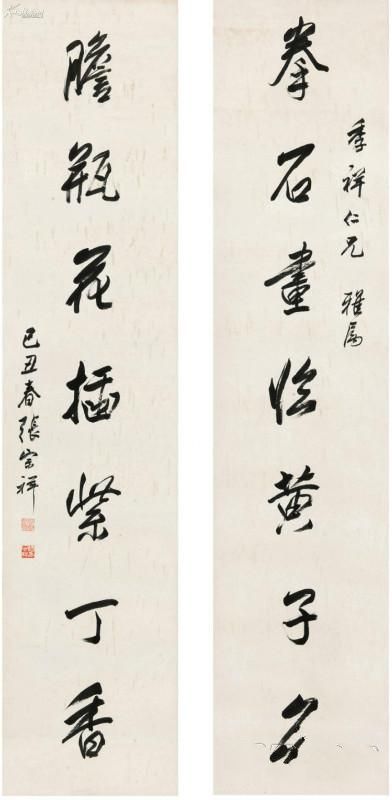 拳石畫臨黃子久
季祥仁兄 雅屬
膽瓶花插紫丁香
己丑春張宗祥